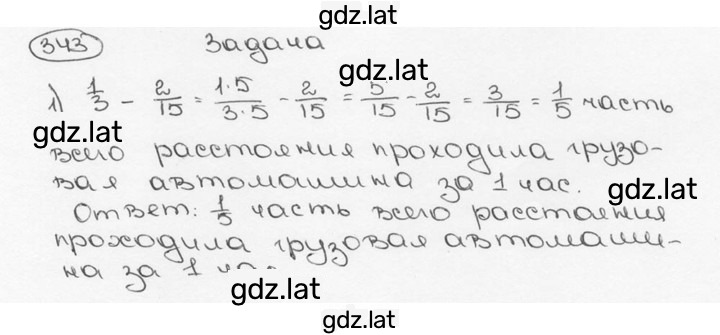 gdz.lat
343 Задача
gdz.lat
1) 1/3 - 2/15 = 1·5/3·5 - 2/15 = 5/15 - 2/15 = 3/15 = 1/5 часть
gdz.lat
всего расстояния проходила грузо-
вая автомашина за 1 час.
gdz.lat
Ответ: 1/5 часть всего расстояния
проходила грузовая автомаши-
gdz.lat
на за 1
gdz.lat
gdz.lat